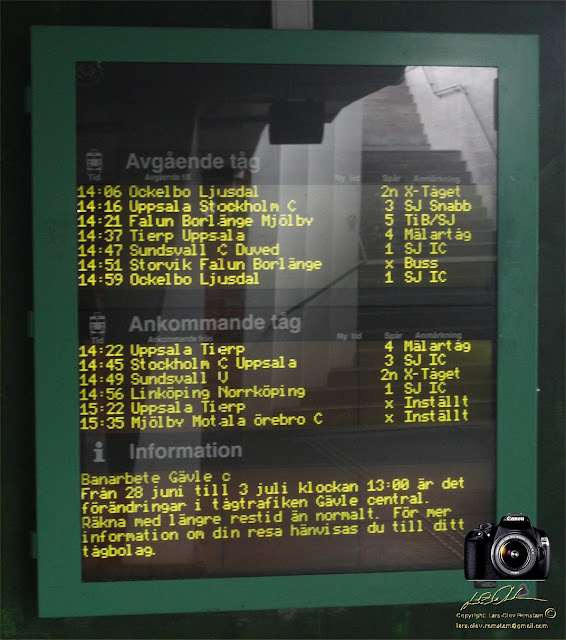 Avgående tåg
Tid Avgående till Ny tid Spår Anmärkning
14:06 Ockelbo Ljusdal 2n X-Tåget
14:16 Uppsala Stockholm C 3 SJ Snabb
14:21 Falun Borlänge Mjölby 5 TiB/SJ
14:37 Tierp Uppsala 4 Mälartåg
14:47 Sundsvall C Duved 1 SJ IC
14:51 Storvik Falun Borlänge x Buss
14:59 Ockelbo Ljusdal 1 SJ IC
Ankommande tåg
Tid Ankommande från Ny tid Spår Anmärkning
14:22 Uppsala Tierp 4 Mälartåg
14:45 Stockholm C Uppsala 3 SJ IC
14:49 Sundsvall V 2n X-Tåget
14:56 Linköping Norrköping 1 SJ IC
15:22 Uppsala Tierp x Inställt
15:35 Mjölby Motala örebro C x Inställt
i Information
Banarbete Gävle c
Från 28 juni till 3 juli klockan 13:00 är det
förändringar i tågtrafiken Gävle central.
Räkna med längre restid än normalt. För mer
information om din resa hänvisas du till ditt
tågbolag.
Canon
Copyright: Lars-Olov Remstam ©
lars.olov.remstam@gmail.com